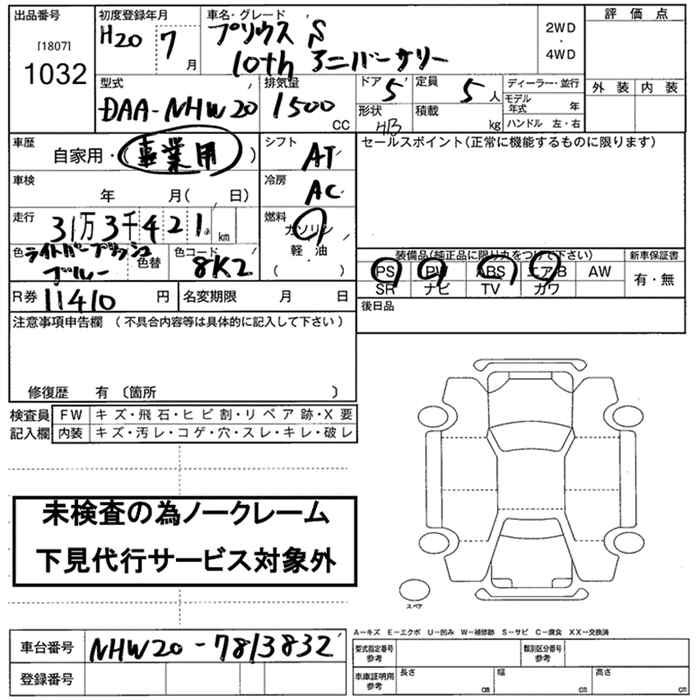 出品番号
[1807]
1032
初度登録年月
H20 7月
車名・グレード
プリウス S
10th アニバーサリー
2WD
・
4WD
評価点
外装 内装
型式
DAA-NHW20
排気量
1500 CC
ドア 5
形状 HB
定員 5人
積載 kg
ディーラー・並行
モデル年式 年
ハンドル 左・右
車歴
自家用・(事業用)
シフト
AT
セールスポイント(正常に機能するものに限ります)
車検
年 月( 日)
冷房
AC
走行
31万3千421 km
燃料
ガソリン
軽油
( )
色 ライトパープリッシュ
ブルー
色替
色コード
8K2
装備品(純正品に限り丸をつけて下さい)
新車保証書
PS PW ABS エアB AW
SR ナビ TV カワ
有・無
R券 11410円
名変期限 月 日
後日品
注意事項申告欄 (不具合内容等は具体的に記入して下さい)
修復歴 有 〔箇所 〕
検査員
記入欄
FW キズ・飛石・ヒビ割・リペア跡・X要
内装 キズ・汚レ・コゲ・穴・スレ・キレ・破レ
未検査の為ノークレーム
下見代行サービス対象外
スペア
A-キズ E-エクボ U-凹み W-補修跡 S-サビ C-腐食 XX-交換済
車台番号 NHW20-7813832
登録番号
型式指定番号
参考
類別区分番号
参考
車庫証明用
参考
長さ cm
幅 cm
高さ cm